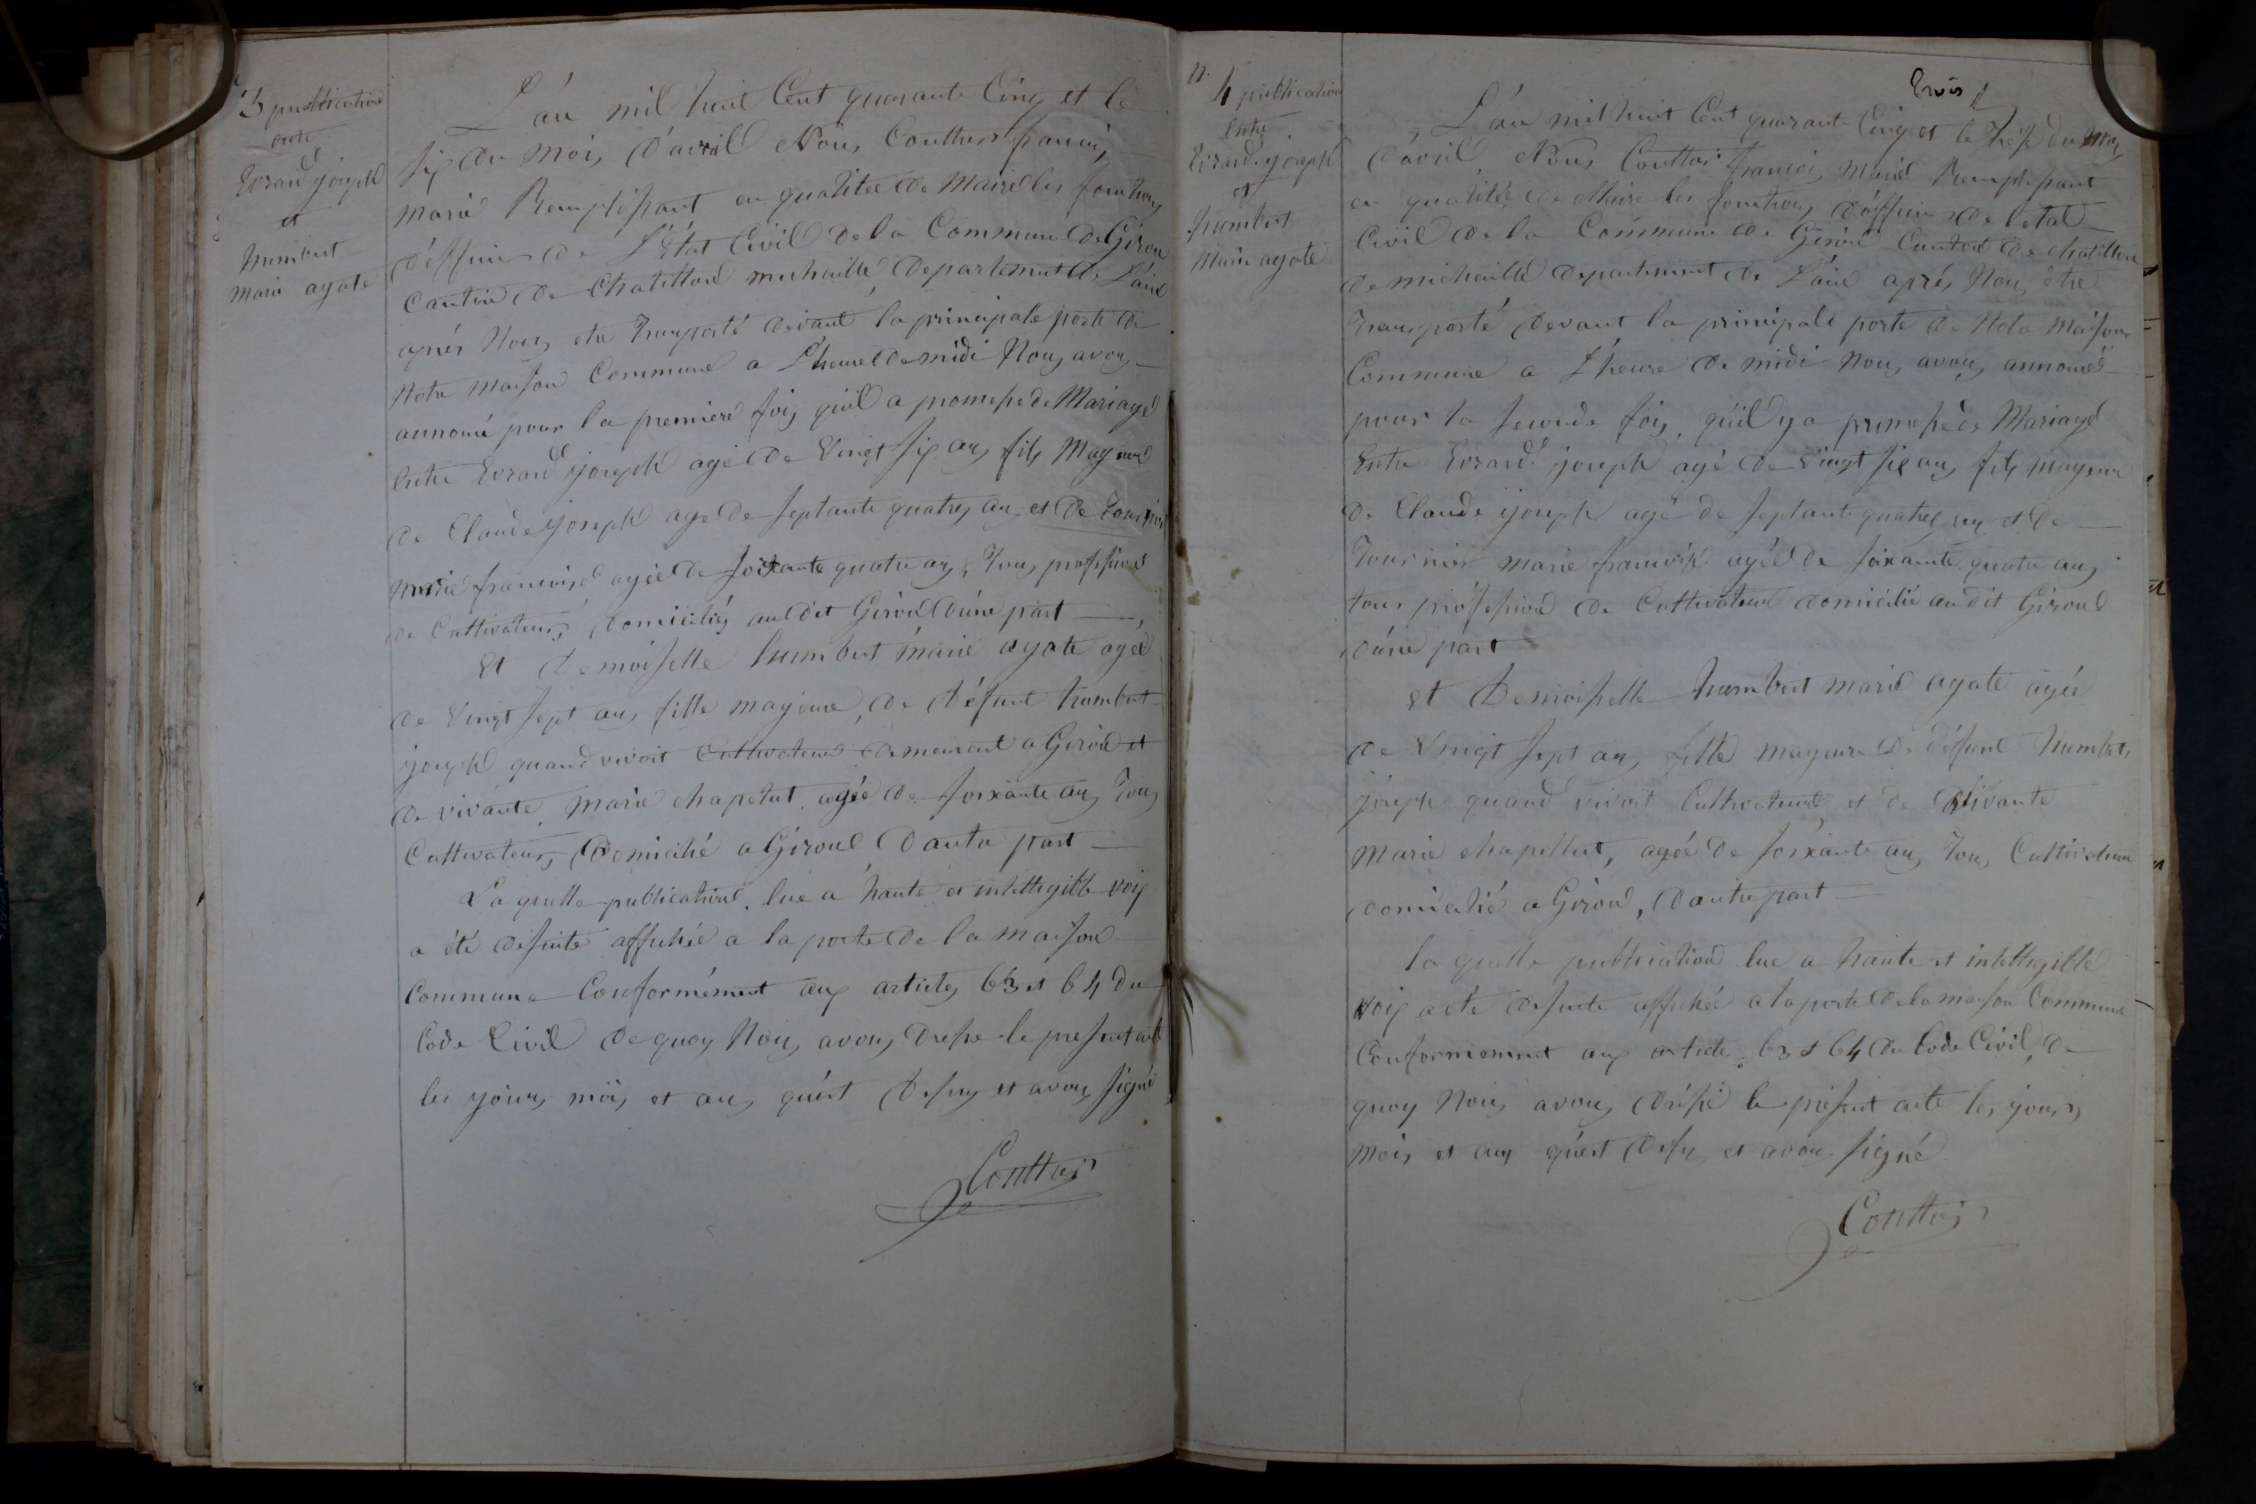 3 publication
entre
Evrard joseph
et
humbert
marie agate
L'an mil huit Cent quarante Cinq et le
six du mois d'avril Nous Couttier francois
marie Remplissant en qualitée de Maire les fonctions
d'officier de L'Etat Civil de la Commune de Giron
Canton de Chatillon michaille, departement de L'ain
aprés Nous etre Transporté devant la principale porte de
Notre maison Commune a L'heure de midi Nous avons
annoncé pour la premiere fois quil a promesse de Mariage
Entre Evrard joseph agé de Vingt six ans fils Mayeur
de Claude joseph age de septante quatres ans et de Tournier
marie francoise agée de soixante quatre ans, Tous profession
de Cultivateurs, domiciliés audit Giron d'une part
Et demoiselle humbert marie agate agée
de Vingt sept ans fille mayeure, de défunt humbert
joseph quand vivoit Cultivateur demeurant a Giron et
de vivante marie chapelut agée de soixante ans Tous
Cultivateurs, Domicilié a Giron D'autre part
La quelle publication, lue a haute et intellegible voix
a été desuite affichée a la porte de la maison
Commune Conformément aux articles 63 et 64 du
Code Civil de quoy Nous avons dressé le present acte
les jours, mois et ans quést dessus et avons signé
Couttier
n.
4 publication
Entre
Evrard joseph
et
humbert
Marie agate
Trois
L'an mil huit Cent quarante Cinq et le Treise du mois
d'avril Nous Couttier francois marie Remplissant
en qualitée de Maire les fonctions d'officier de l'etat
Civil de la Commune de Giron Canton de chatillon
de michaille departement de L'ain aprés Nous être
Transporté devant la principale porte de Notre Maison
Commune a L'heure de midi Nous avons annoncés
pour la seconde fois, qu'il y a promesse de Mariage
Entre Evrard joseph agé de vingt six ans fils mayeur
de Claude joseph agé de septante quatres ans et de
Tournier marie francoise agée de soixante quatre ans
tous profession de Cultivateur domicilié audit Giron
d'une part
et Demoiselle humbert marie agate agée
de Vingt sept ans, fille mayeure De défunt humbert
joseph quand vivoit Cultivateur, et de vivante
Marie chapellut, agée de soixante ans Tous Cultivateur
domicilié a Giron, D'autre part
la quelle publication lue a haute et intellegible
voix a été desuite affichée a la porte de la maison Commune
Conformement aux article 63 et 64 du Code Civil, de
quoy Nous avons dréssé le présent acte les jours,
mois et ans quést dessus et avons signé
Couttier